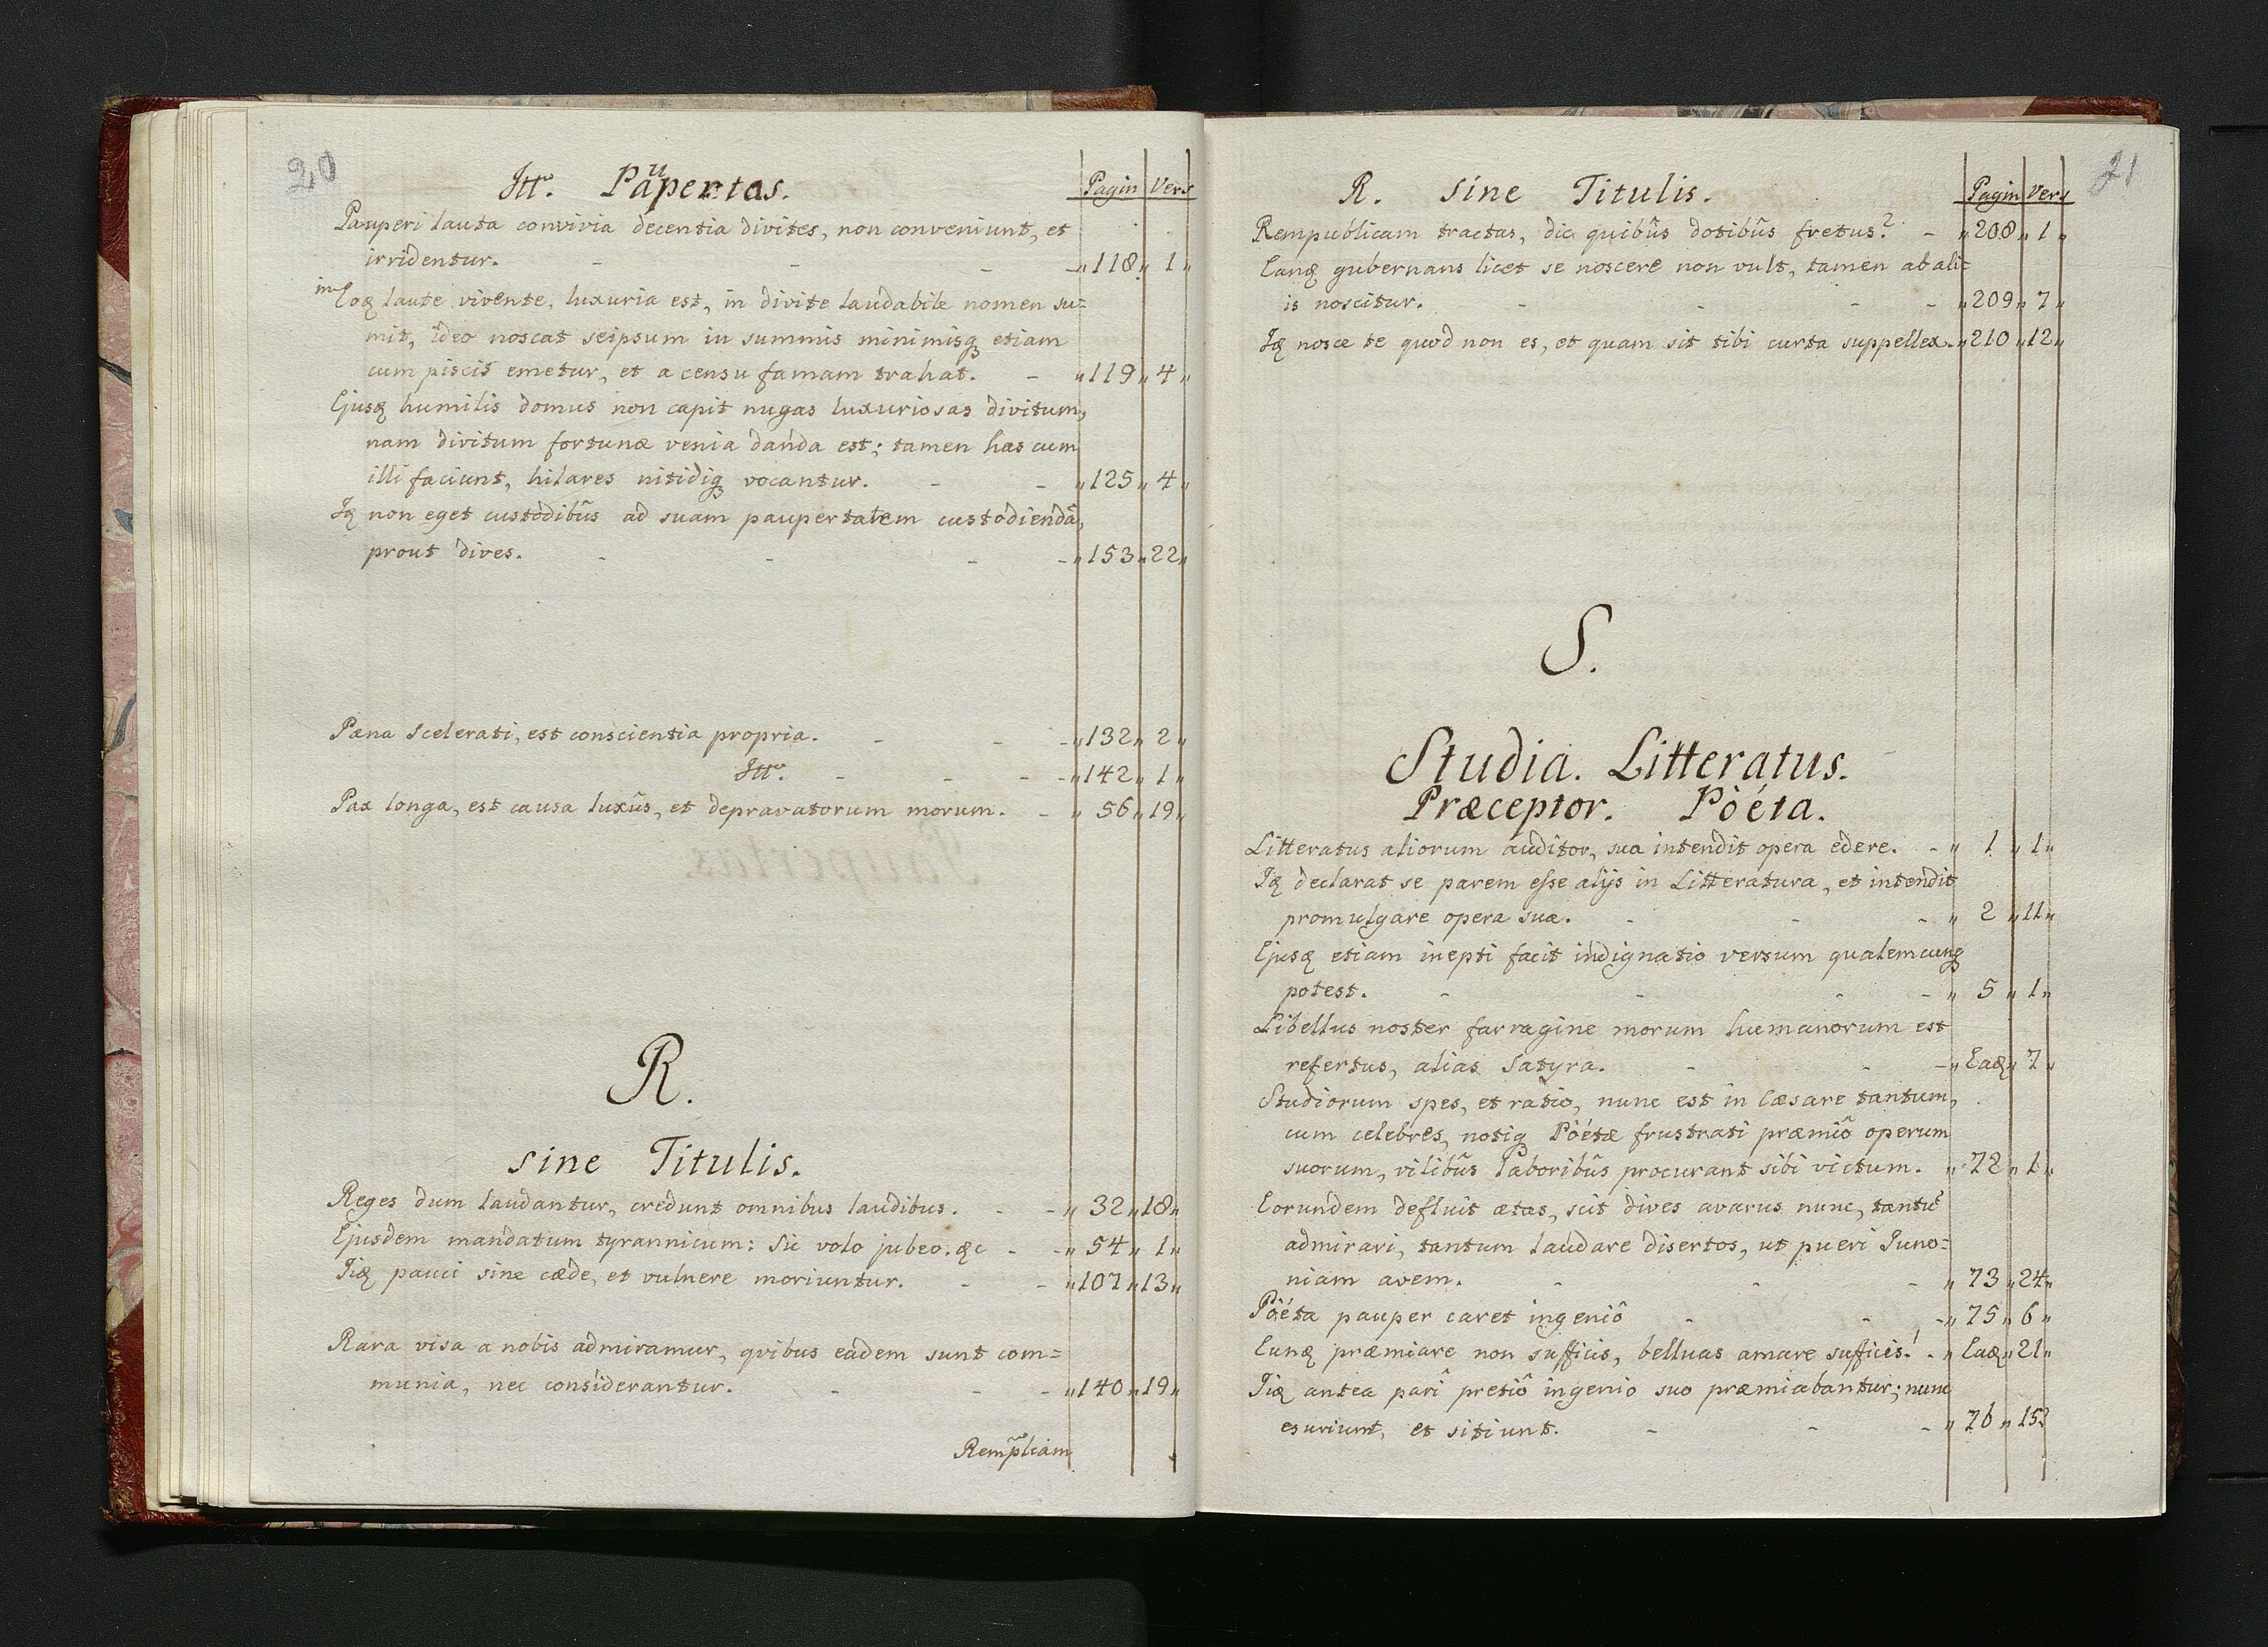 20
Itt͠o. Paupertas. Pagin Vers
Pauperi lauta convivia decentia divites, non conveniunt, et
irridentur. - - - - " 118 " 1 "
in Eoq laute vivente, luxuria est, in divite laudabile nomen su=
mit, ideo noscat seipsum in summis minimisq etiam
cum piscis emetur, et a censu famam trahat. - " 119 " 4 "
Ejusq humilis domus non capit nugas luxuriosas divitum,
nam divitum fortunæ venia danda est; tamen has cum
illi faciunt, hilares nitidiq vocantur. - - " 125 " 4 "
Iq non eget custodibûs ad suam paupertatem custodiendã,
prout dives. - - - - " 153 " 22 "
Pæna Scelerati, est conscientia propria. - - - " 132 " 2 "
Itt͠o. - - - - " 142 " 1 "
Pax longa, est causa luxûs, et depravatorum morum. - " 56 " 19 "
R.
sine Titulis.
Reges dum laudantur, credunt omnibus laudibus. - - " 32 " 18 "
Ejusdem mandatum tyrannicum: Sic volo jubeo. &c - - " 54 " 1 "
Iiq pauci sine cæde, et vulnere moriuntur. - - " 107 " 13 "
Rara visa a nobis admiramur, qvibus eadem sunt com=
munia, nec considerantur. - - - " 140 " 19 "
Remp͠lcam
21
R. sine Titulis. Pagin Vers
Rempublicam tractas, dic quibûs dotibûs fretus? - " 208 " 1 "
Eanq gubernans licet se noscere non vult, tamen ab ali=
is noscitur. - - - - " 209 " 7 "
Iq nosce te quod non es, et quam sit tibi curta suppellex. " 210 " 12 "
S.
Studia. Litteratus.
Præceptor. Pòéta.
Litteratus aliorum auditor, sua intendit opera edere. - " 1 " 1 "
Iq declarat se parem esse alijs in Litteratura, et intendit
promulgare opera sua. - - - " 2 " 11 "
Ejusq etiam inepti facit indignatio versum qualemcunq
potest. - - - - " 5 " 1 "
Libellus noster farragine morum humanorum est
refertus, alias Satyra. - - - " Eaq " 7 "
Studiorum spes, et ratio, nunc est in Cæsare tantum,
cum celebres, notiq Pòétæ frustrati præmiô operum
suorum, vilibûs laboribûs procurant sibi victum. " 72 " 1 "
Eorundem defluit ætas, scit dives avarus nunc, tantũ
admirari, tantum laudare disertos, ut pueri Juno=
niam avem. - - - " 73 " 24 "
Pòéta pauper caret ingeniô - - - " 75 " 6 "
Eunq præmiare non sufficis, belluas amare sufficis! - " Eaq " 21 "
Iiq antea parî pretiô ingenio suo præmiabantur; nunc
esuriunt, et sitiunt. - - - " 76 " 15